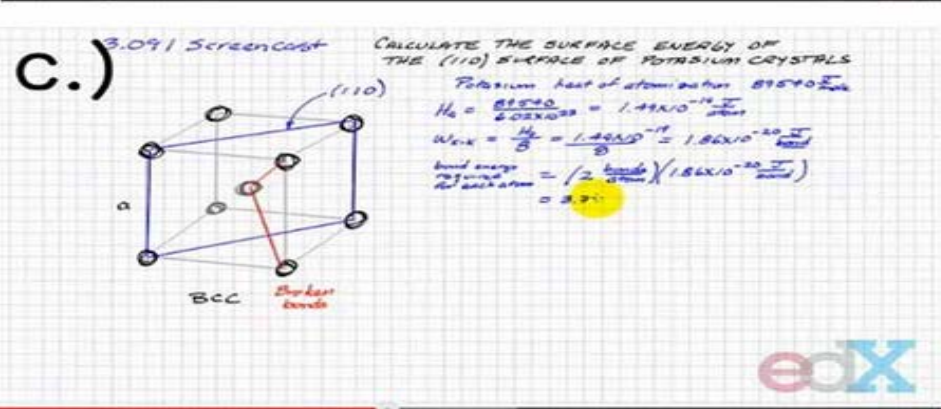 c.)
3.091 Screencast
CALCULATE THE SURFACE ENERGY OF
THE (110) SURFACE OF POTASIUM CRYSTALS
Potassium heat of atomization 89540 J/mole
(110)
Ha = 89540 / 6.02x10²³ = 1.49x10⁻¹⁹ J/atom
= Ha/8 = 1.49x10⁻¹⁹/8 = 1.86x10⁻²⁰ J/bond
bond energy
required
for each atom
= (2 bonds/atom)(1.86x10⁻²⁰ J/bond)
= 3.7
a
BCC
Broken
bonds
edX